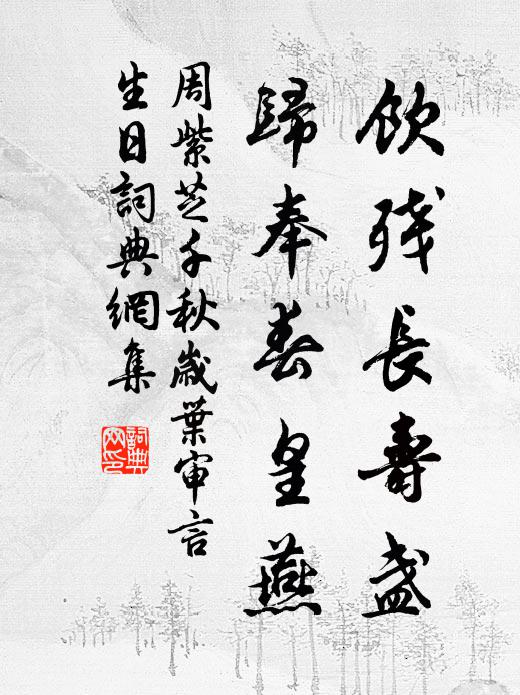 飲殘長壽盞
歸奉春皇燕
周紫芝千秋歲葉審言
生日詞典網集
詞典網印